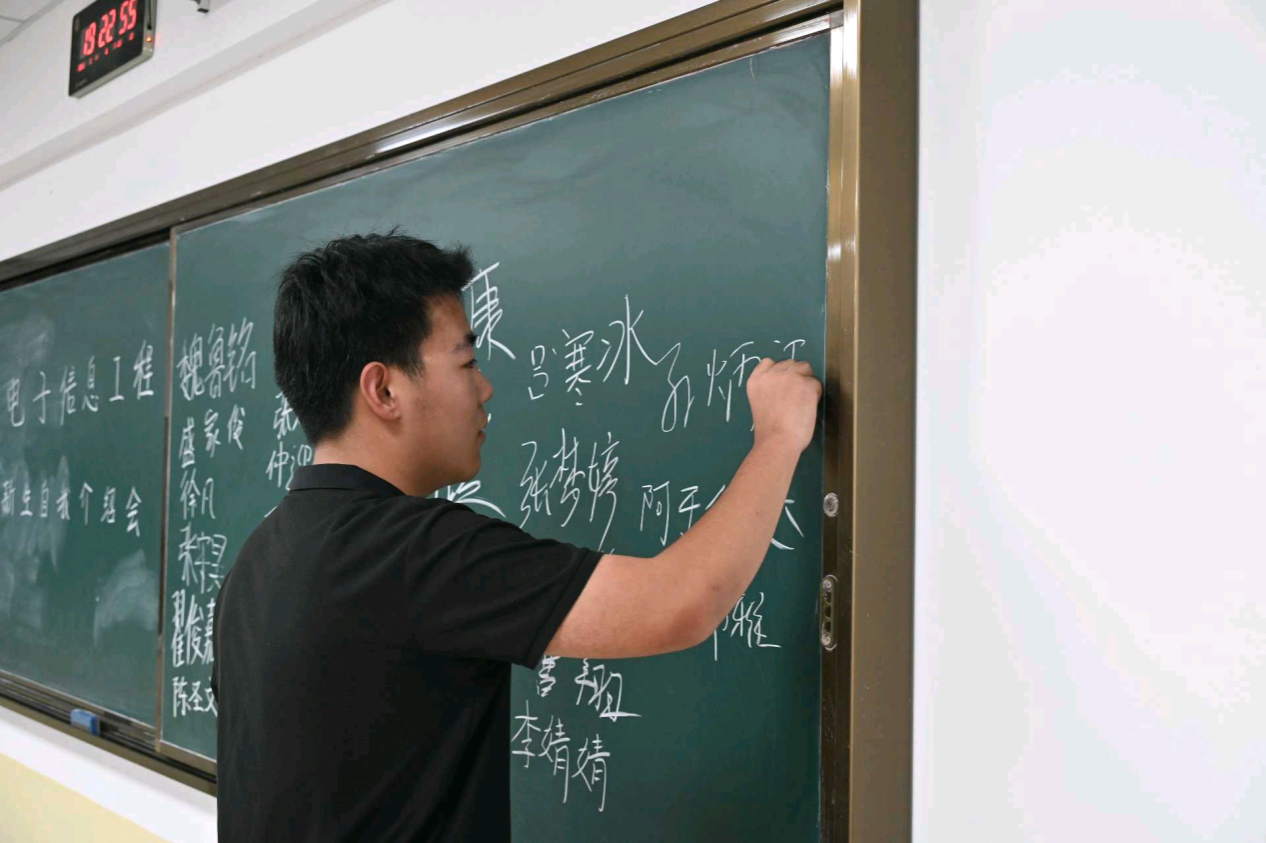 19:22 55
电子信息工程
新生自我介绍会
魏鲁铭
盛家俊
徐凡
翟俊嘉
陈圣文
张
仲迎
康
吕寒冰
孔炳
张梦婷
阿
雅
曹翔
李婧婧